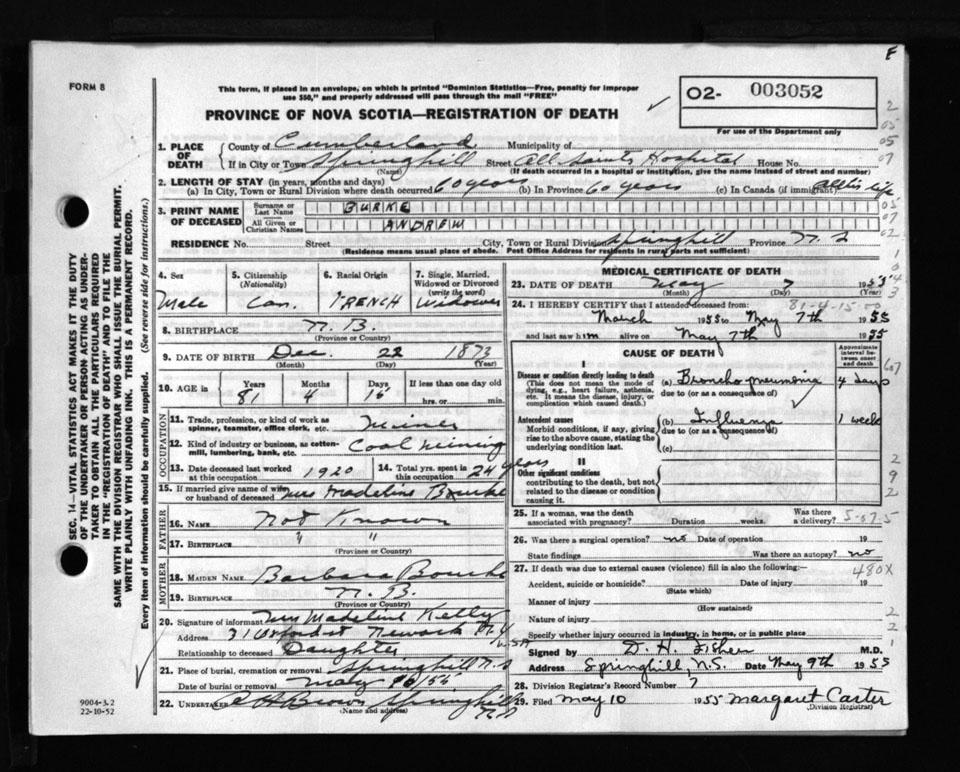 F
FORM 8
This form, if placed in an envelope, on which is printed "Dominion Statistics—Free, penalty for improper
use $50," and properly addressed will pass through the mail "FREE"
PROVINCE OF NOVA SCOTIA—REGISTRATION OF DEATH
02- 003052
For use of the Department only
SEC. 14—VITAL STATISTICS ACT MAKES IT THE DUTY
OF THE UNDERTAKER OR PERSON ACTING AS UNDER-
TAKER TO OBTAIN ALL THE PARTICULARS REQUIRED
IN THE "REGISTRATION OF DEATH" AND TO FILE THE
SAME WITH THE DIVISION REGISTRAR WHO SHALL ISSUE THE BURIAL PERMIT.
WRITE PLAINLY WITH UNFADING INK. THIS IS A PERMANENT RECORD.
Every item of information should be carefully supplied. (See reverse side for instructions.)
1. PLACE OF DEATH
County of Cumberland Municipality of
If in City or Town Springhill Street All Saints Hospital House No.
(Name) (If death occurred in a hospital or institution, give the name instead of street and number)
2. LENGTH OF STAY (in years, months and days)
(a) In City, Town or Rural Division where death occurred 60 years (b) In Province 60 years (c) In Canada (if immigrant) all his life
3. PRINT NAME OF DECEASED
Surname or Last Name BURKE
All Given or Christian Names ANDREW
RESIDENCE No. Street City, Town or Rural Division Springhill Province N.S
(Residence means usual place of abode. Post Office Address for residents in rural parts not sufficient)
4. Sex Male
5. Citizenship (Nationality) Can.
6. Racial Origin FRENCH
7. Single, Married, Widowed or Divorced (write the word) Widower
8. BIRTHPLACE N.B.
(Province or Country)
9. DATE OF BIRTH Dec. 22 1873
(Month) (Day) (Year)
10. AGE Years 81 Months 4 Days 15 If less than one day old hrs. or min.
OCCUPATION
11. Trade, profession, or kind of work as spinner, teamster, office clerk, etc. Miner
12. Kind of industry or business, as cotton-mill, lumbering, bank, etc. Coal Mining
13. Date deceased last worked at this occupation 1920
14. Total yrs. spent in this occupation 24 years
15. If married give name of wife or husband of deceased Mrs Madeline Bourke
FATHER
16. NAME Not Known
17. BIRTHPLACE " "
(Province or Country)
MOTHER
18. MAIDEN NAME Barbara Bourke
19. BIRTHPLACE N.B.
(Province or Country)
20. Signature of informant Mrs Madeline Kelly
Address 31 Oxford st Newark N.J U.S.A
Relationship to deceased Daughter
21. Place of burial, cremation or removal Springhill N.S
Date of burial or removal May 10/55
22. UNDERTAKER Brown Springhill N.S
(Name and address)
9004-3.2
22-10-52
MEDICAL CERTIFICATE OF DEATH
23. DATE OF DEATH May 7 1955
(Month) (Day) (Year)
81-4-15
24. I HEREBY CERTIFY that I attended deceased from:
March 1955 to May 7th 1955
and last saw him alive on May 7th 1955
CAUSE OF DEATH
Approximate interval between onset and death
I
Disease or condition directly leading to death
(This does not mean the mode of dying, e.g., heart failure, asthenia, etc. It means the disease, injury, or complication which caused death.)
(a) Broncho pneumonia 4 days
due to (or as a consequence of)
Antecedent causes
Morbid conditions, if any, giving rise to the above cause, stating the underlying condition last.
(b) Influenza 1 week
due to (or as a consequence of)
(c)
II
Other significant conditions contributing to the death, but not related to the disease or condition causing it.
25. If a woman, was the death associated with pregnancy? Duration weeks. Was there a delivery?
26. Was there a surgical operation? no Date of operation 19
State findings Was there an autopsy? no
27. If death was due to external causes (violence) fill in also the following:—
480X
Accident, suicide or homicide? Date of injury 19
(State which)
Manner of injury
(How sustained)
Nature of injury
Specify whether injury occurred in industry, in home, or in public place
Signed by D. H. Fisher M.D.
Address Springhill, N.S. Date May 9th 1955
28. Division Registrar's Record Number 7
29. Filed May 10 1955 Margaret Carter
(Division Registrar)